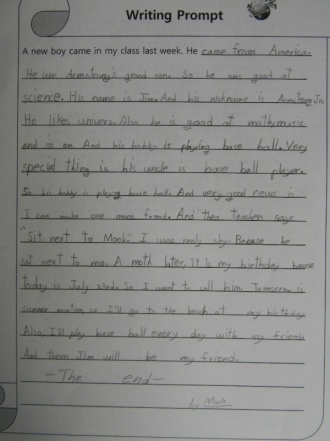 Writing Prompt
A new boy came in my class last week. He came from America.
He was Armstrong's grand son. So he was good at
science. His name is Jim. And his nickname is Armstrong Jr.
He likes univers. Also he is good at math, music
and so on. And his hobby is playing base ball. Very
special thing is his uncle is base ball player.
So his hobby is playing base ball. And very good news is
I can make one more friend. And then teacher says
"Sit next to Mark." I was really shy. Becase he
sit next to me. A moth later, it is my birthday
today is July 23rd. So I want to call him. Tomorrow is
summer so I'll go to the beach at my birthday
Also, I'll play base ball every day with my friends
And them Jim will be my friend.
- The end -
by Mark